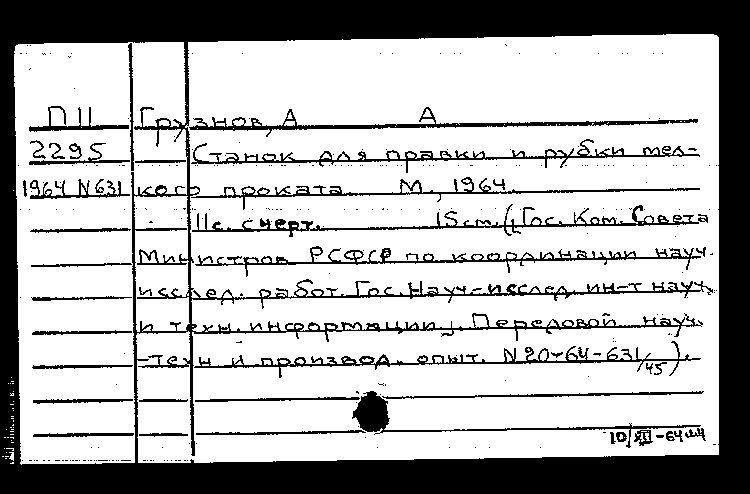 П11 Грузнов, А А
2295 Станок для правки и рубки мел-
1964 N631 кого проката. М., 1964.
11с. с черт. 15 см. (Гос. Ком. Совета
Министров РСФСР по координации науч.
исслед. работ. Гос. Науч-исслед. ин-т науч.
и техн. информации. Передовой науч.
-техн и производ. опыт. N 20-64-631/45).
10/XII-64